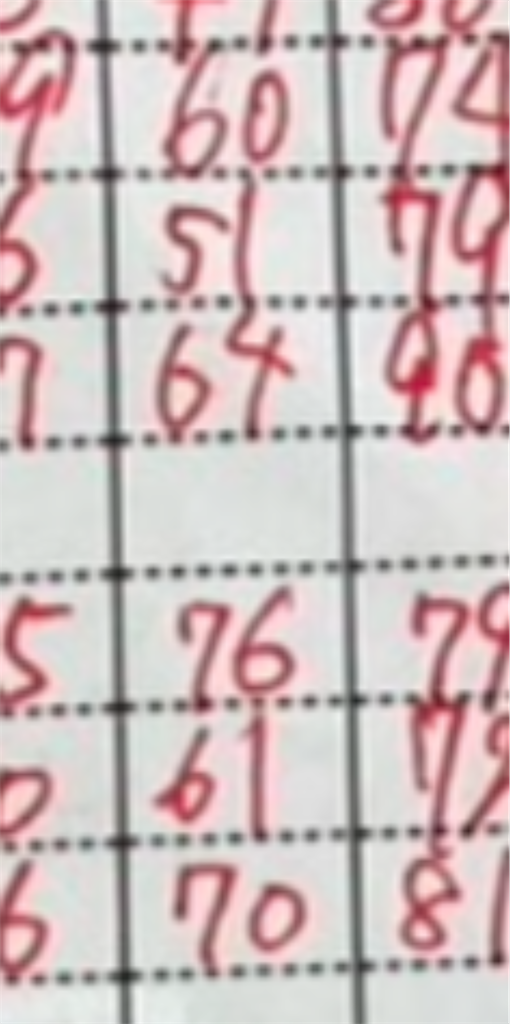 9 60 74
6 51 79
7 64 90
5 76 79
0 61 79
6 70 81